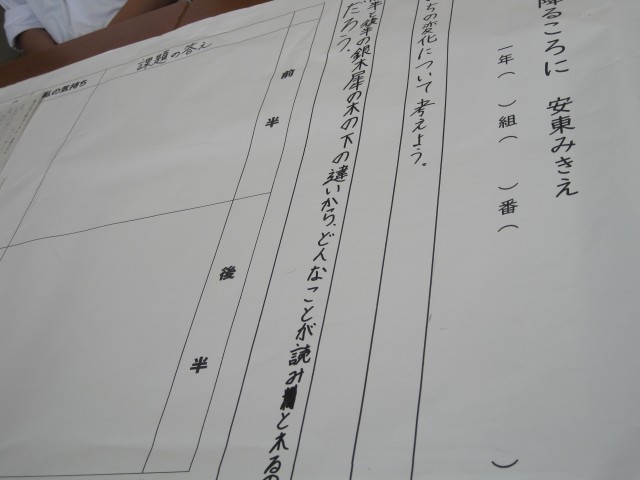 降るころに 安東みきえ
一年( )組( )番( )
ちの変化について考えよう。
半の銀木犀の木の下の違いから、どんなことが読みとれるの
だろう。
前半
後半
課題の答え
私の気持ち